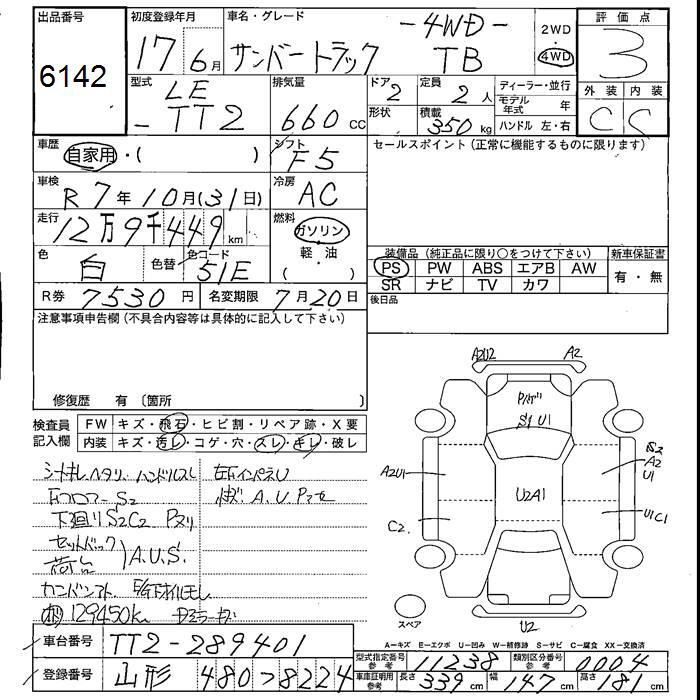 出品番号 初度登録年月 車名・グレード 評価点
6142
17年6月 サンバートラック -4WD- TB 2WD・4WD 3
型式 LE-TT2 排気量 660cc ドア 2 定員 2人 ディーラー・並行 外装 内装
形状 積載 350kg モデル年式 年 C C
ハンドル 左・右
車歴 自家用・( ) シフト F5 セールスポイント(正常に機能するものに限ります)
車検 R7年10月(31日) 冷房 AC
走行 12万9千449km 燃料 ガソリン
軽・油
( )
色 白 色替 色コード 51E 装備品(純正品に限り○をつけて下さい) 新車保証書
PS PW ABS エアB AW 有・無
SR ナビ TV カワ
R券 7530円 名変期限 7月20日 後日品
注意事項申告欄(不具合内容等は具体的に記入して下さい)
修復歴 有〔箇所 〕
検査員 FW キズ・飛石・ヒビ割・リペア跡・X要
記入欄 内装 キズ・汚レ・コゲ・穴・スレ・キレ・破レ
A2U2 A2
S1 U1
A2U1 U2A1 S2 A2 U1
C2 U1C1
スペア U2
シートキレ ヘタリ ハンドルスレ 左右インパネU
S2 A.U
下廻りS2C2 Pヌリ
セットバック
荷台 A.U.S.
129450km
A=キズ E=エクボ U=凹み W=補修跡 S=サビ C=腐食 XX=交換済
車台番号 TT2-289401 型式指定番号 参考 11238 類別区分番号 参考 0004
登録番号 山形 480 8224 車庫証明用 参考 長さ 339cm 幅 147cm 高さ 181cm